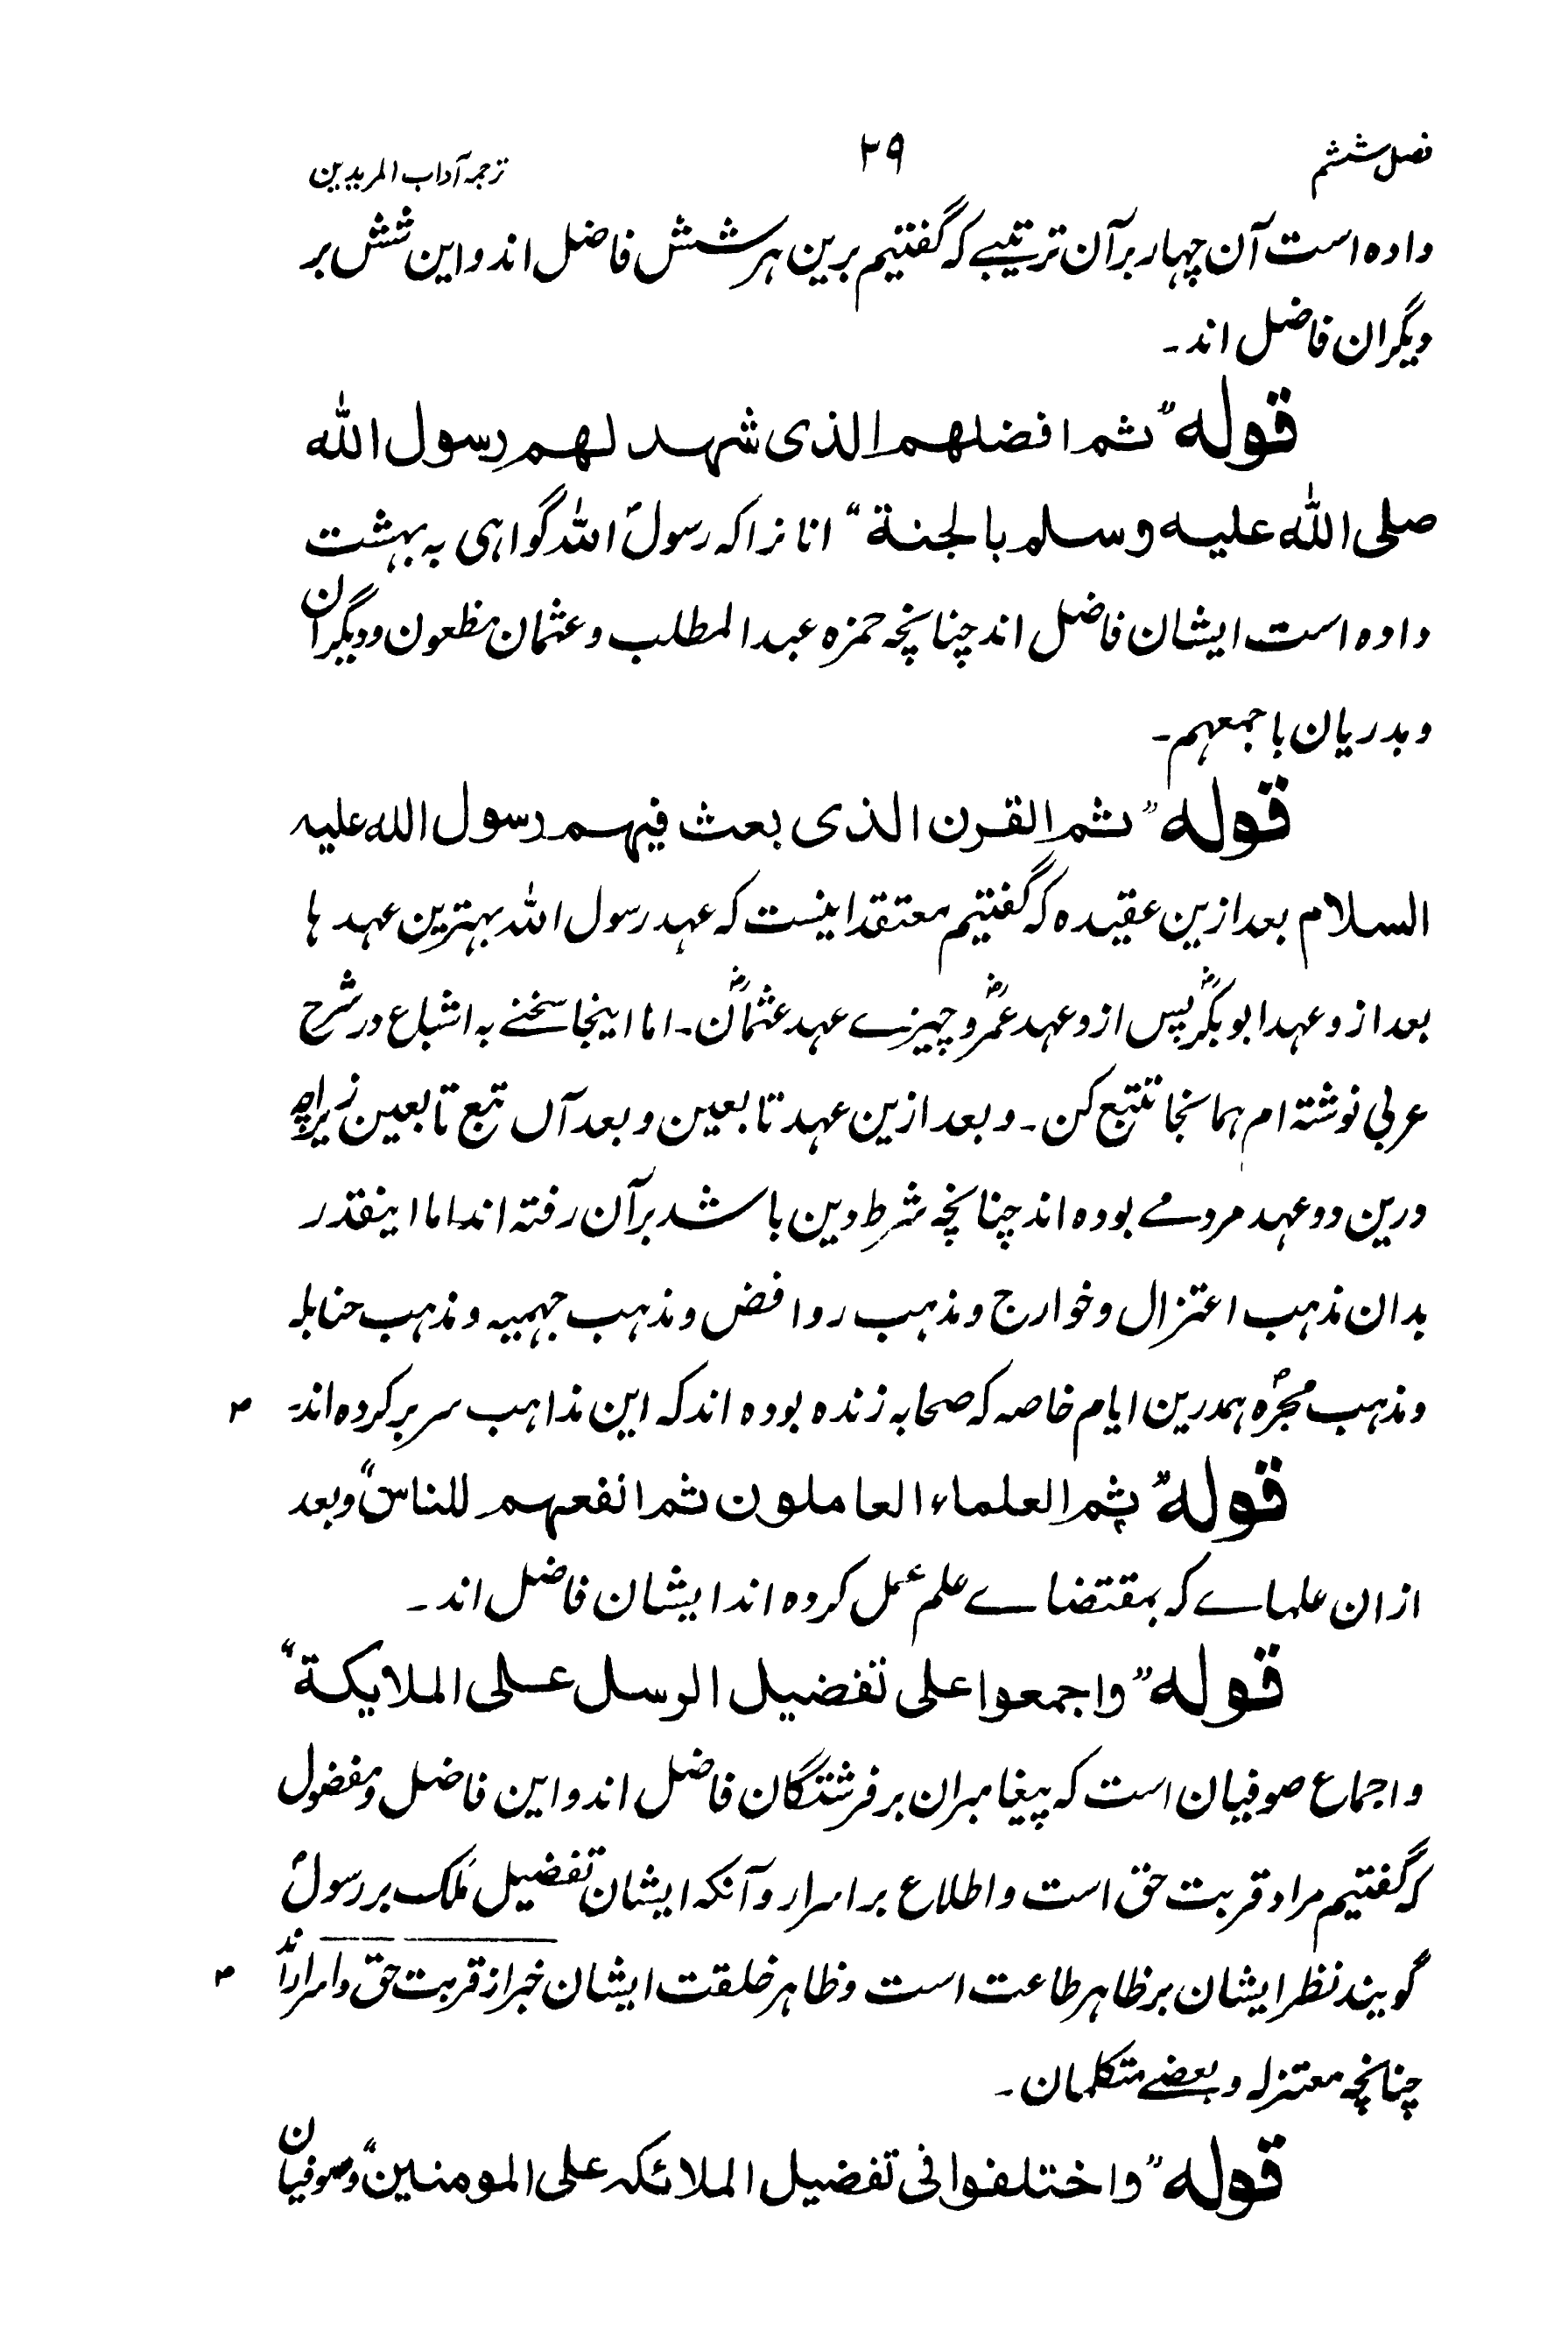 فصل ششم
۲۹
ترجمہ آداب المریدین
داده است آن چہار برآن ترتیبے کہ گفتیم برین ہر شش فاضل اند واین شش بر
دیگران فاضل اند۔
قوله ”ثم افضلهم الذی شهد لهم رسول الله
صلی الله علیه وسلم بالجنة“ انانرا کہ رسولؐ اللہ گواہی بہ بہشت
داده است ایشان فاضل اند چنانچہ حمزہ عبدالمطلب وعثمان مظعون ودیگران
وبدریان باجمعہم۔
قوله ”ثم القرن الذی بعث فیهم رسول الله علیه
السلام بعد ازین عقیدہ کہ گفتیم معتقد اینست کہ عہد رسول اللہ بہترین عہد ہا
بعد از و عہد ابوبکرؓ پس از و عہد عمرؓ و چیزے عہد عثمانؓ۔ اما اینجا سخنے بہ اشباع در شرح
عربی نوشتہ ام ہمانجا تتبع کن۔ وبعد ازین عہد تابعین وبعد آں تبع تابعین زیراچہ
درین دو عہد مردمے بوده اند چنانچہ شرط دین باشد برآن رفتہ اند اما اینقدر
بدان مذہب اعتزال وخوارج ومذہب روافض ومذہب جہمیہ ومذہب حنابلہ
ومذہب مجبرہ ہمدرین ایام خاصہ کہ صحابہ زندہ بودہ اند کہ این مذاہب سر برکردہ اند۔
قوله ”ثم العلماء العاملون ثم انفعهم للناس“ وبعد
ازان علماے کہ بمقتضاے علم عمل کردہ اند ایشان فاضل اند۔
قوله ”واجمعوا علی تفضیل الرسل علی الملایکة“
واجماع صوفیان است کہ پیغامبران بر فرشتگان فاضل اند واین فاضل ومفضول
کہ گفتیم مراد قربت حق است واطلاع بر اسرار وآنکہ ایشان تفضیل ملک بر رسولؐ
گویند نظر ایشان بر ظاہر طاعت است وظاہر خلقت ایشان خبر از قربت حق واسرار
چنانچہ معتزلہ وبعضے متکلمان۔
قوله ”واختلفوا فی تفضیل الملائکه علی المومنین“ وصوفیان